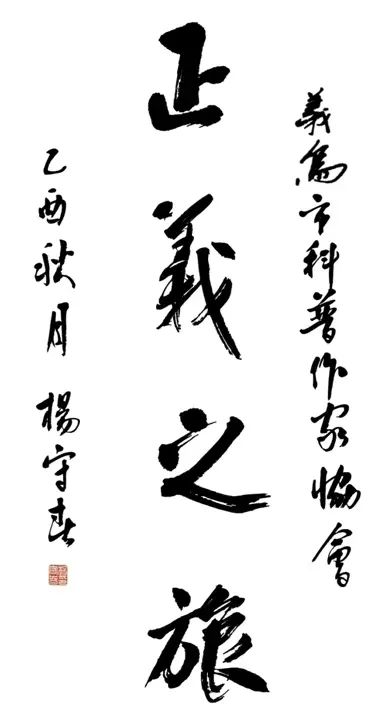 義烏市科普作家協會
正義之旅
乙酉秋月 楊守春